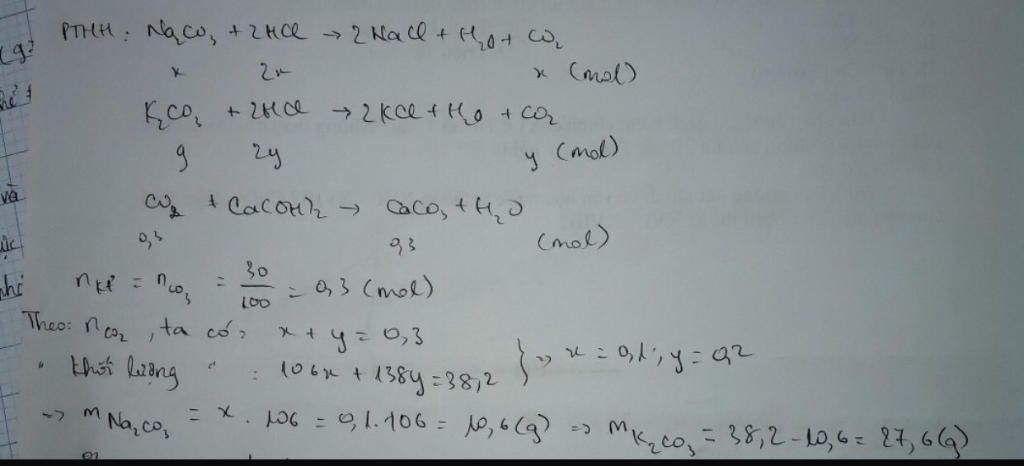 PTHH: Na₂CO₃ + 2HCl → 2NaCl + H₂O + CO₂
x 2x x (mol)
K₂CO₃ + 2HCl → 2KCl + H₂O + CO₂
y 2y y (mol)
và
CO₂ + Ca(OH)₂ → CaCO₃ + H₂O
0,3 0,3 (mol)
n kế = n CO₃ = 30/100 = 0,3 (mol)
Theo: n CO₂, ta có: x + y = 0,3
" khối lượng " : 106x + 138y = 38,2 } => x = 0,1; y = 0,2
=> m Na₂CO₃ = x . 106 = 0,1 . 106 = 10,6 (g) => m K₂CO₃ = 38,2 - 10,6 = 27,6 (g)